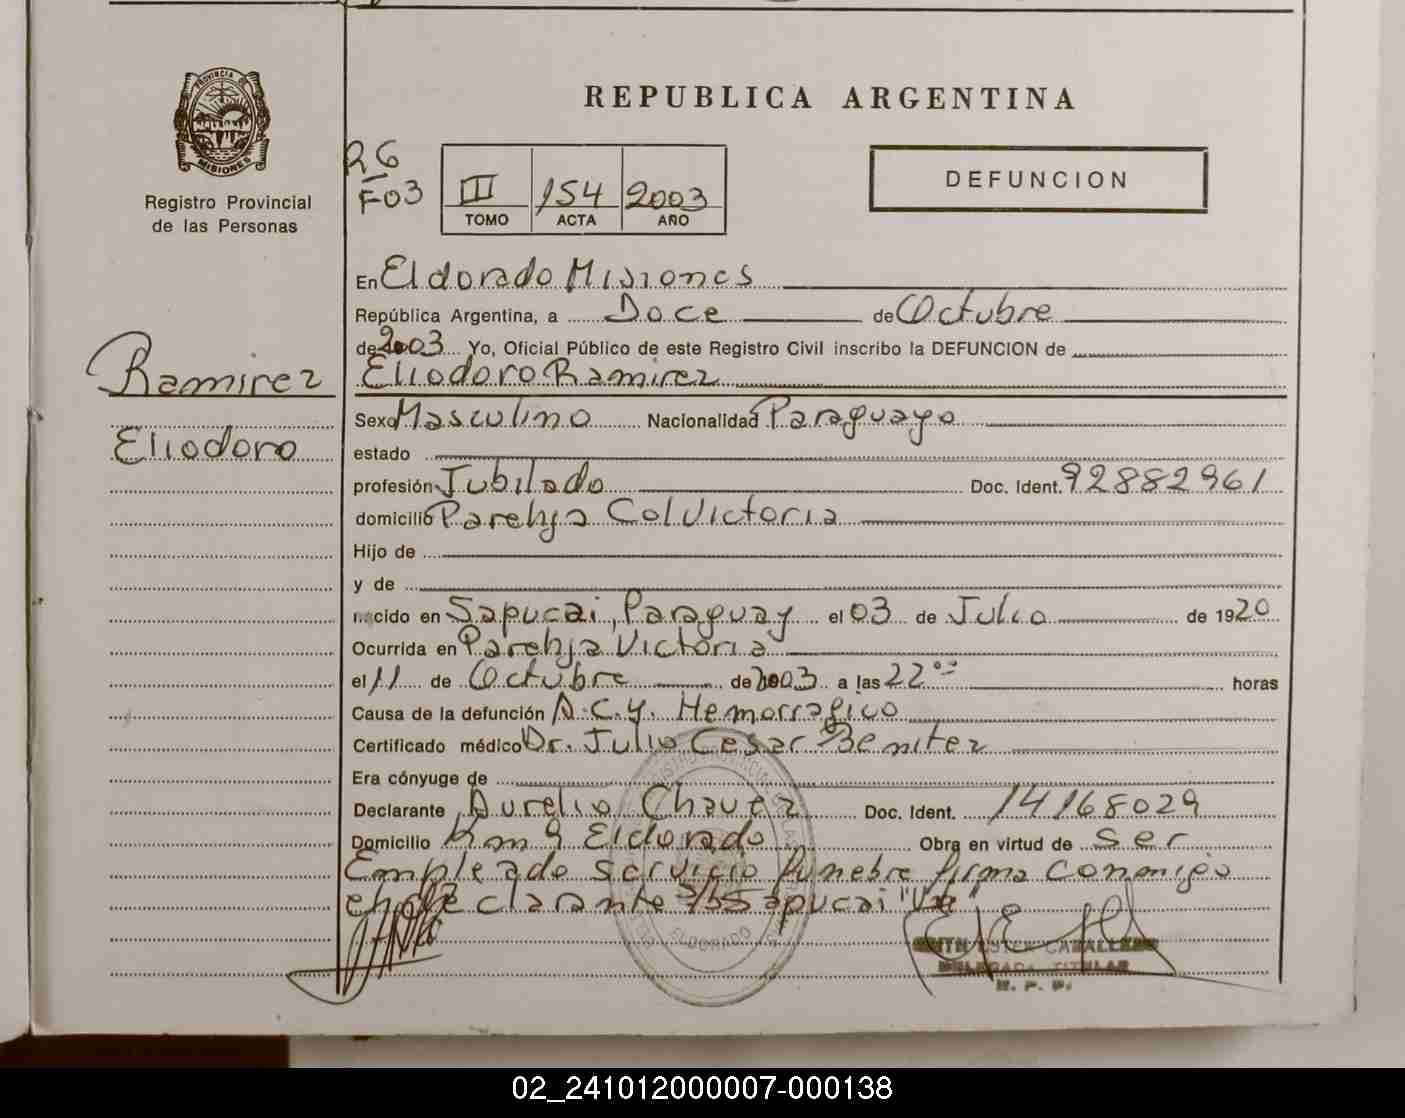 PROVINCIA DE
MISIONES
Registro Provincial
de las Personas
Ramirez
Eliodoro
REPUBLICA ARGENTINA
R6
F03
III 154 2003
TOMO ACTA AÑO
DEFUNCION
En Eldorado Misiones
República Argentina, a Doce de Octubre
de 2003 Yo, Oficial Público de este Registro Civil inscribo la DEFUNCION de
Eliodoro Ramirez
Sexo Masculino Nacionalidad Paraguayo
estado
profesión Jubilado Doc. Ident. 92882961
domicilio Parehja Col Victoria
Hijo de
y de
nacido en Sapucai, Paraguay el 03 de Julio de 1920
Ocurrida en Parehja Victoria
el 11 de Octubre de 2003 a las 22 horas
Causa de la defunción A.C.V. Hemorragico
Certificado médico Dr. Julio Cesar Benitez
Era cónyuge de
Declarante Aurelio Chavez Doc. Ident. 14168029
Domicilio Km 9 Eldorado Obra en virtud de ser
Empleado servicio funebre firma conmigo
el declarante S/B Sapucai "Vale"
ELDORADO
EDITH ESTER CABALLERO
DELEGADA TITULAR
R. P. P.
02_241012000007-000138